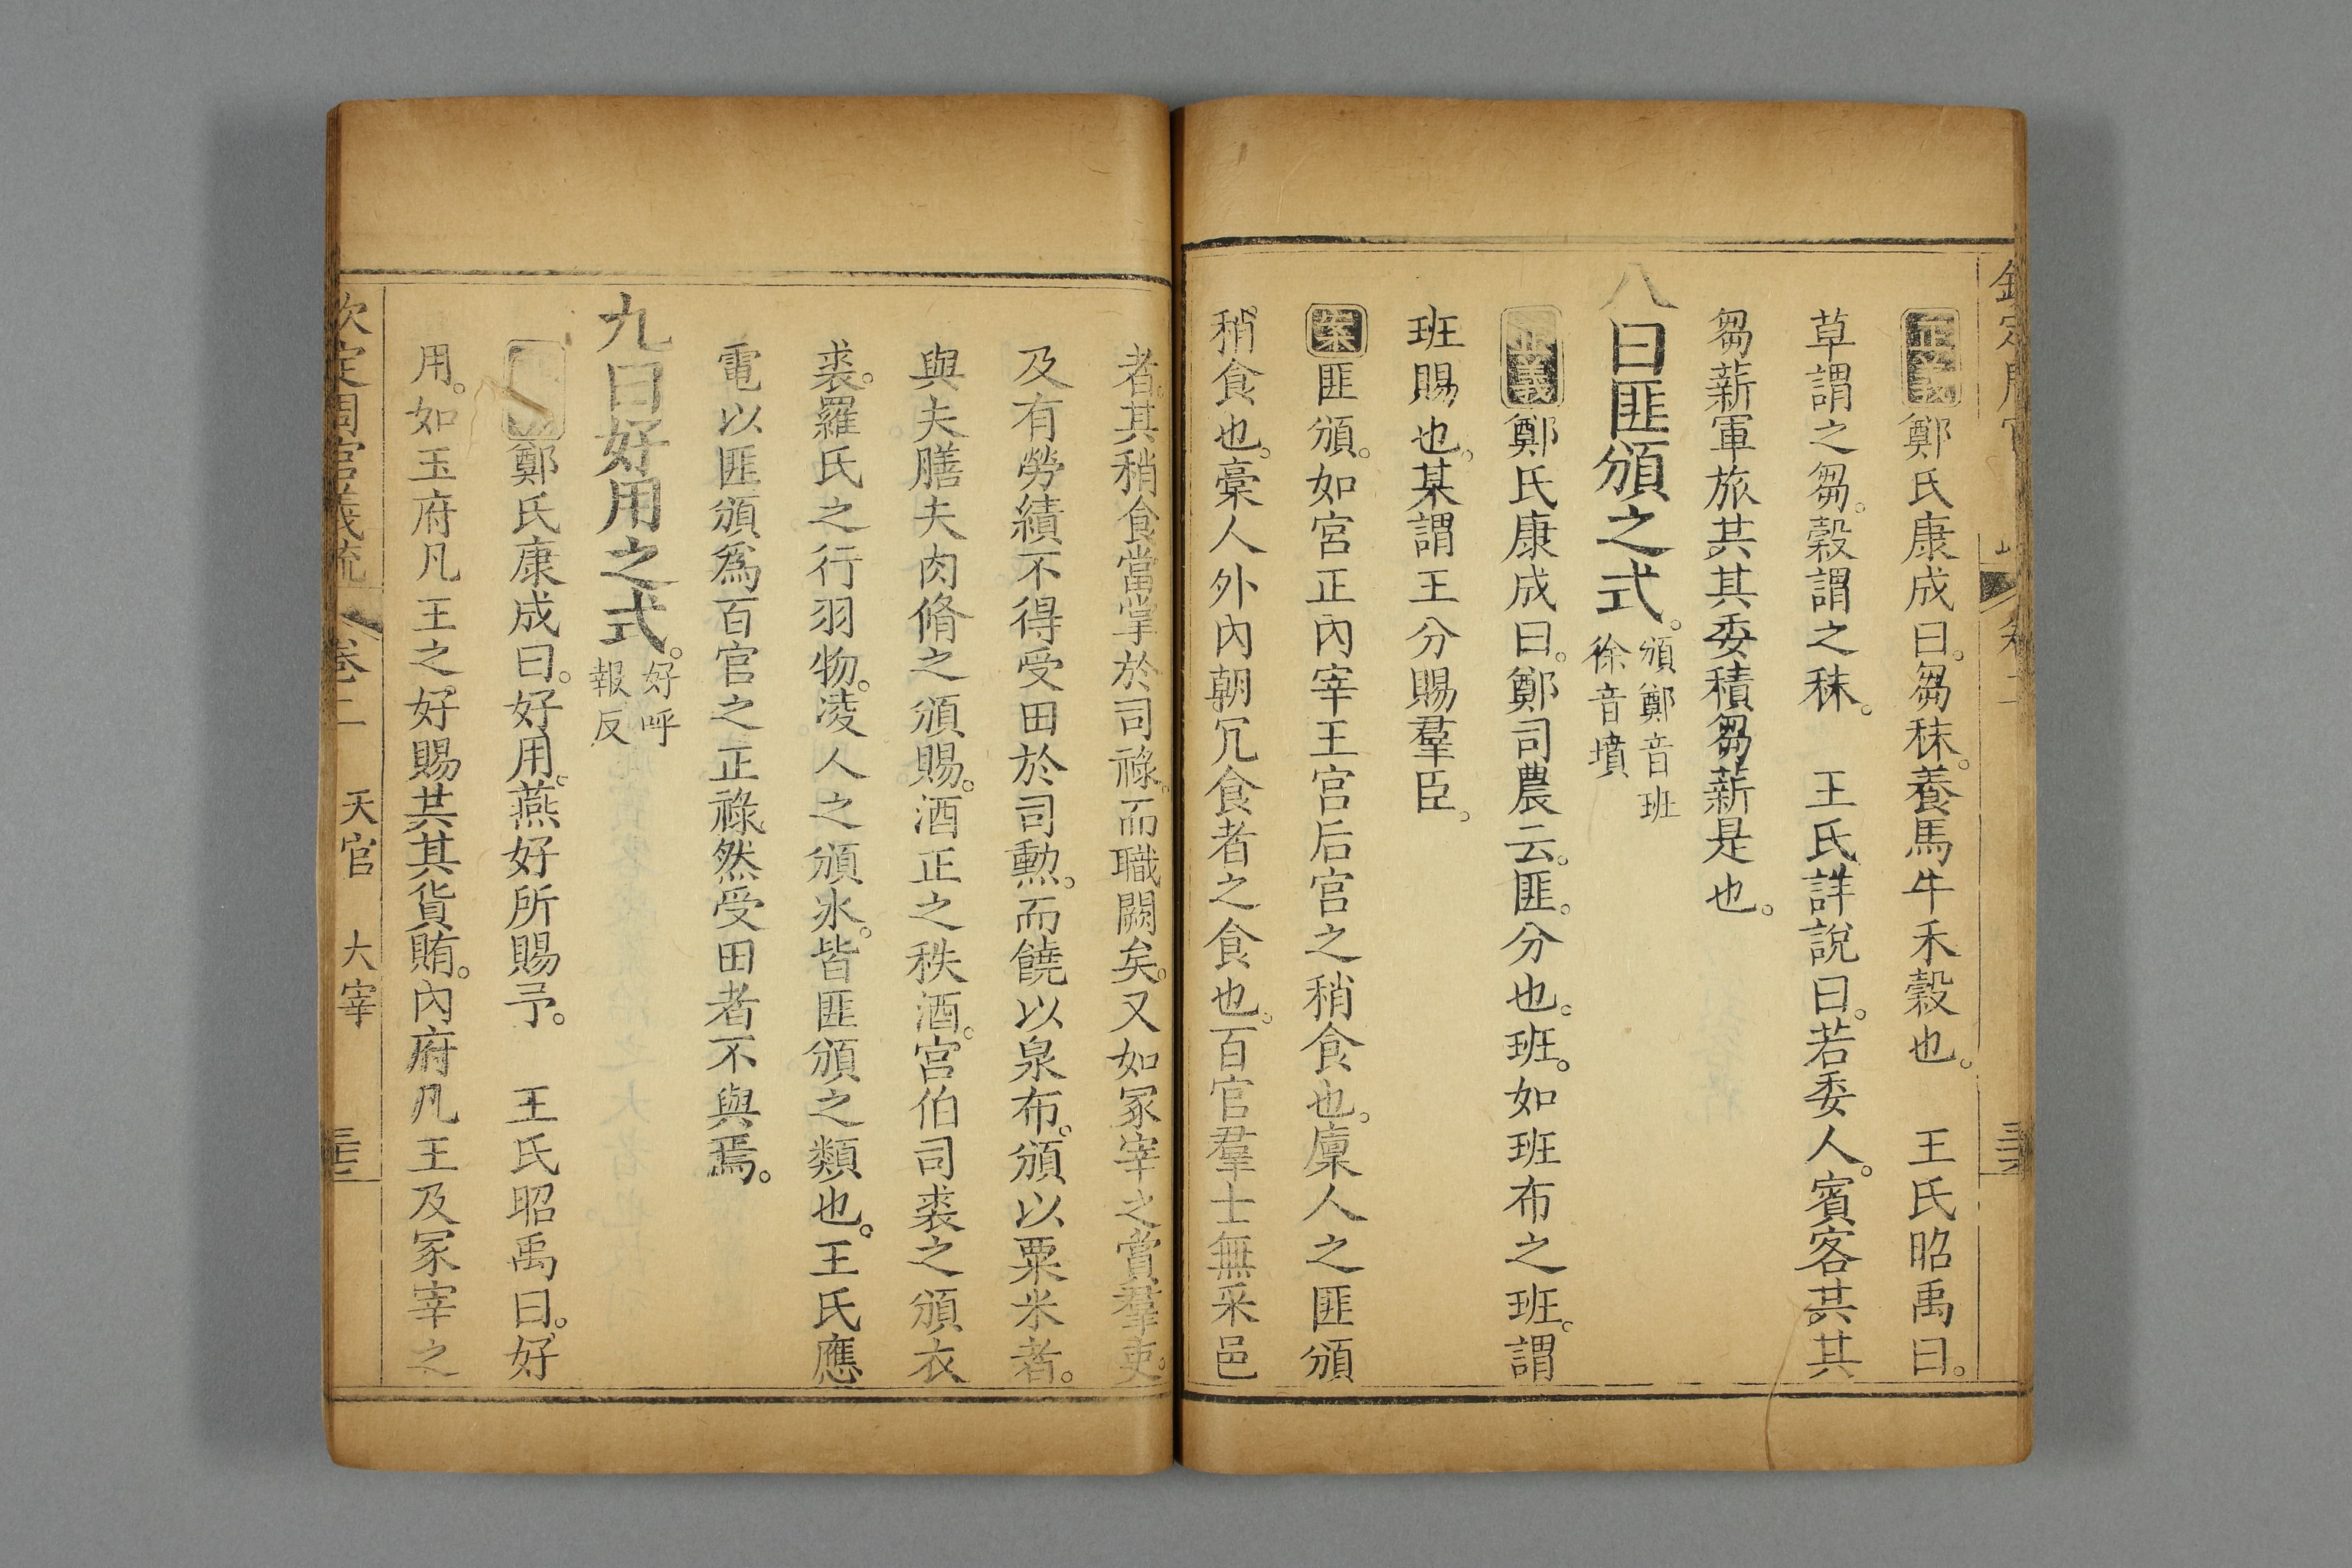 正義鄭氏康成曰。芻秣。養馬牛禾穀也。　王氏昭禹曰。
草謂之芻。穀謂之秣。　王氏詳說曰。若委人。賓客共其
芻薪軍旅共其委積芻薪是也。
八曰匪頒之式。頒鄭音班
徐音墳
正義鄭氏康成曰。鄭司農云。匪。分也。班。如班布之班。謂
班賜也。某謂王分賜羣臣。
案匪頒。如宮正內宰王宮后宮之稍食也。廩人之匪頒
稍食也。槀人外內朝冗食者之食也。百官羣士無采邑
者。其稍食當掌於司祿。而職闕矣。又如冢宰之賞羣吏。
及有勞績不得受田於司勲。而饒以泉布。頒以粟米者。
與夫膳夫肉脩之頒賜。酒正之秩酒。宮伯司裘之頒衣
裘。羅氏之行羽物。凌人之頒冰。皆匪頒之類也。王氏應
電以匪頒爲百官之正祿然受田者不與焉。
九曰好用之式。好呼
報反
鄭氏康成曰。好用。燕好所賜予。　王氏昭禹曰。好
用。如玉府凡王之好賜共其貨賄。內府凡王及冢宰之
欽定周官義疏　卷二　天官　大宰